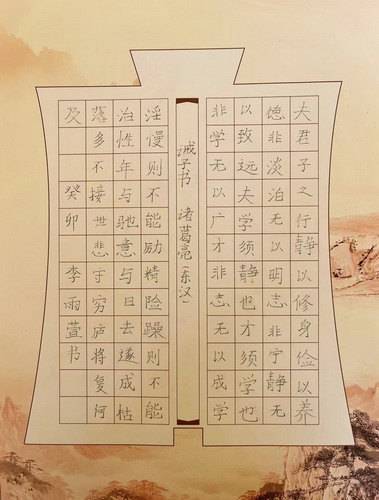 夫君子之行静以修身俭以养
德非淡泊无以明志非宁静无
以致远夫学须静也才须学也
非学无以广才非志无以成学
诫子书 诸葛亮(东汉)
淫慢则不能励精险躁则不能
治性年与驰意与日去遂成枯
落多不接世悲守穷庐将复何
及 癸卯 李雨萱书